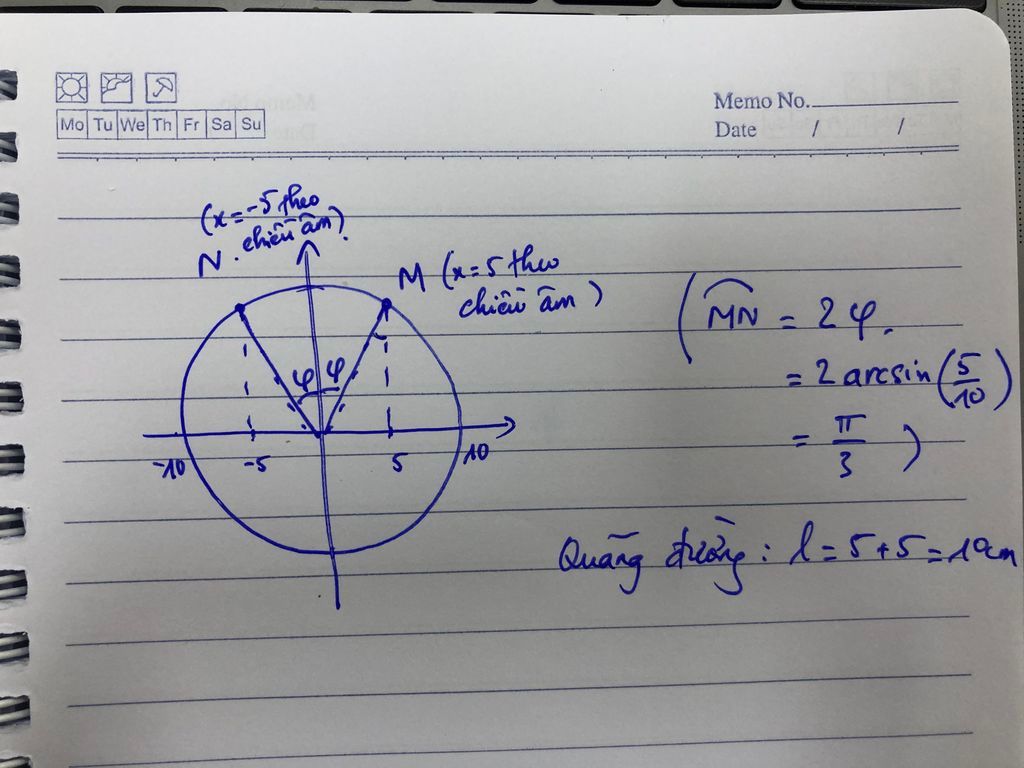 Mo Tu We Th Fr Sa Su
Memo No.
Date / /
(x=-5 theo
chiều âm).
N.
M (x=5 theo
chiều âm)
(MN = 2φ.
= 2 arcsin(5/10)
= π/3 )
φ φ
-10 -5 5 10
Quãng đường: l = 5+5 = 10cm